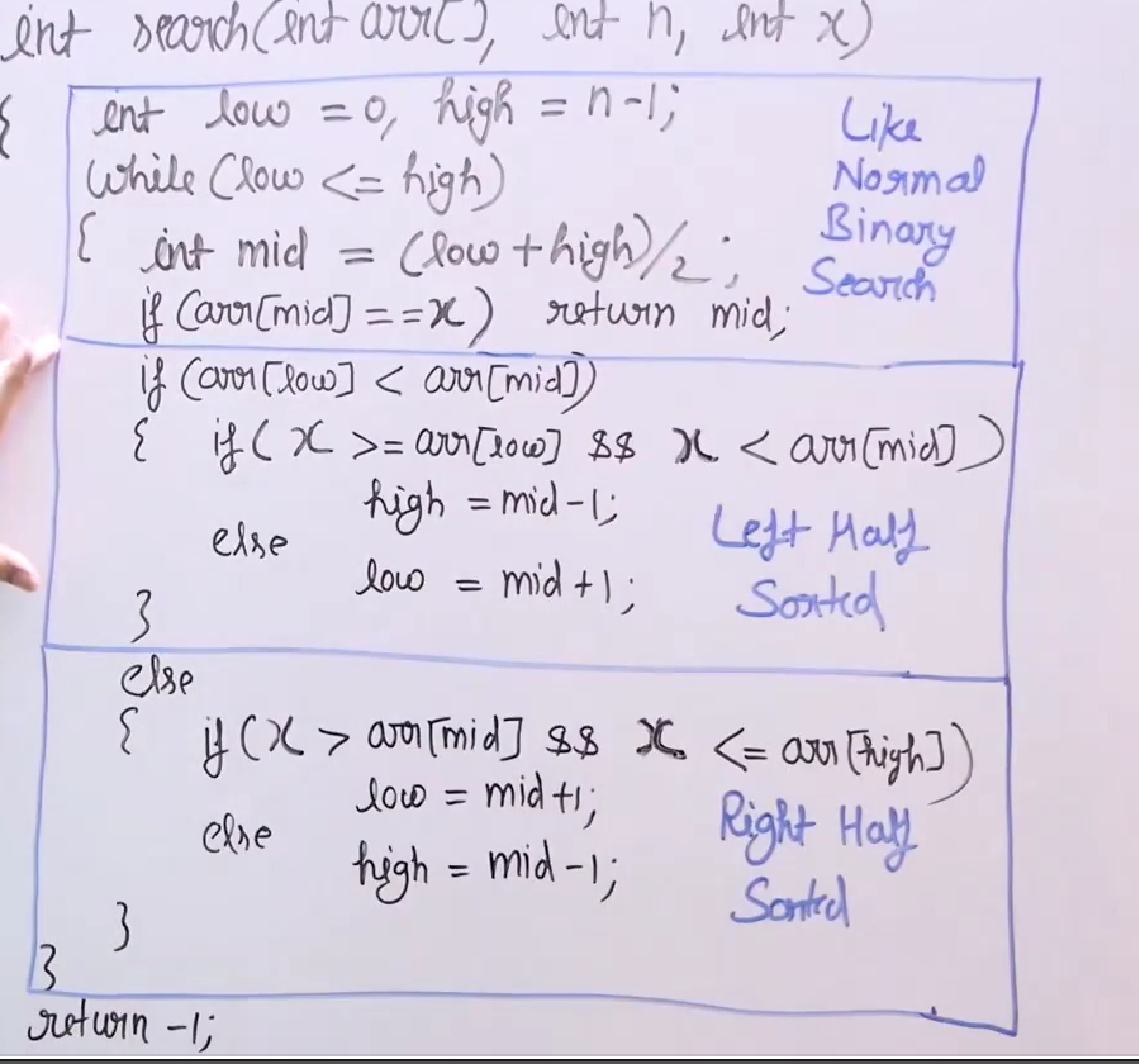 int search(int arr[], int n, int x)
{
int low = 0, high = n-1;
while (low <= high)
{ int mid = (low + high)/2;
if (arr[mid] == x) return mid;
Like
Normal
Binary
Search
if (arr[low] < arr[mid])
{ if ( x >= arr[low] && x < arr[mid] )
high = mid-1;
else
low = mid+1;
}
Left Half
Sorted
else
{ if (x > arr[mid] && x <= arr[high])
low = mid+1;
else
high = mid-1;
}
Right Half
Sorted
}
return -1;